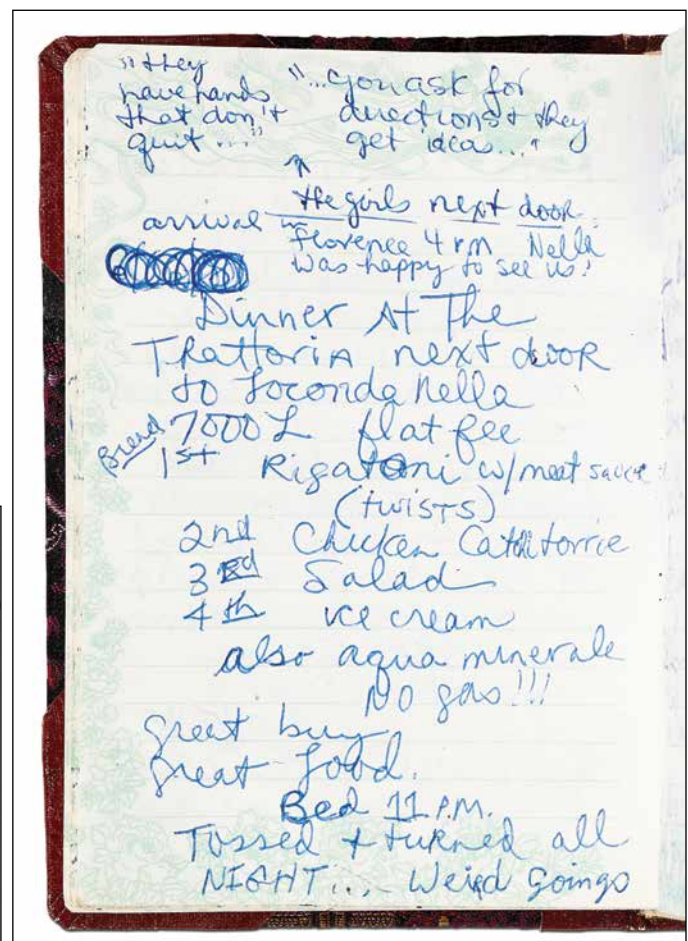 "they
have hands
that don't
quit ..."
"...you ask for
directions + they
get ideas..."
the girls next door
arrival in
Florence 4 pm Nella
was happy to see us!
Dinner At The
Trattoria next door
to Loconda Nella
7000 L flat fee
Bread
1st Rigatoni w/meat sauce
(twists)
2nd Chicken
3rd Salad
4th ice cream
also aqua minerale
NO gas!!!
great buy
great food.
Bed 11 P.M.
Tossed + turned all
NIGHT... Weird goings